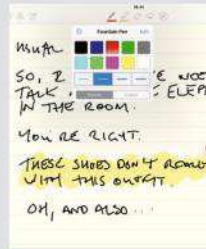 Fountain Pen
USUAL
SO, I
TALK ELEP
IN THE ROOM.
YOU'RE RIGHT.
THESE SHOES DON'T REALLY
WITH THIS OUTFIT.
OH, AND ALSO ...